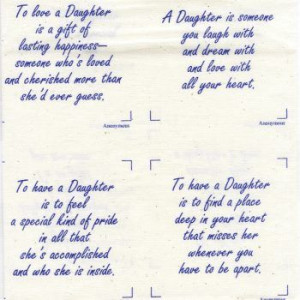 To love a Daughter
is a gift of
lasting happiness—
someone who's loved
and cherished more than
she'd ever guess.
Anonymous
A Daughter is someone
you laugh with
and dream with
and love with
all your heart.
Anonymous
To have a Daughter
is to feel
a special kind of pride
in all that
she's accomplished
and who she is inside.
Anonymous
To have a Daughter
is to find a place
deep in your heart
that misses her
whenever you
have to be apart.
Anonymous